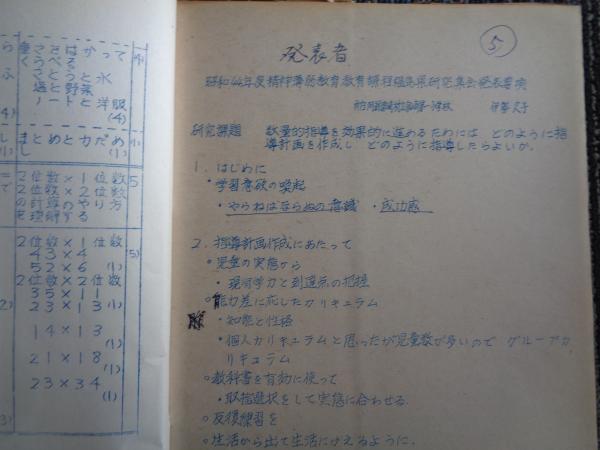 ら
ふ
4)
し
1)
=
で
2)
3)
重さをはかって
くらべる
さとうと水
塩と野菜
ノートと洋服
(4)
まとめとたしかめ
(1)
2位数×1位数
2位数×2位数
の計算のやり方
を理解する
5
2位数×1位数
43×4
52×6
(1)
2位数×2位数
35×11
23×13
(1)
14×13
(1)
21×18
(1)
23×34
(1)
5)
5
発表者
昭和44年度精神薄弱教育教育課程編成研究集会発表要項
伊藤久子
研究課題 数量的指導を効果的に進めるためには どのように指
導計画を作成し どのように指導したらよいか。
1. はじめに
・学習意欲の喚起
・やらねばならぬの意識 ・成功感
2. 指導計画作成にあたって
○児童の実態から
・現有学力と到達点の把握
○能力差に応じたカリキュラム
・知能と性格
・個人カリキュラムと思ったが児童数が多いので グループカ
リキュラム
○教科書を有効に使って
・取捨選択をして実態に合わせる.
○反復練習を
○生活から出て生活にかえるように.